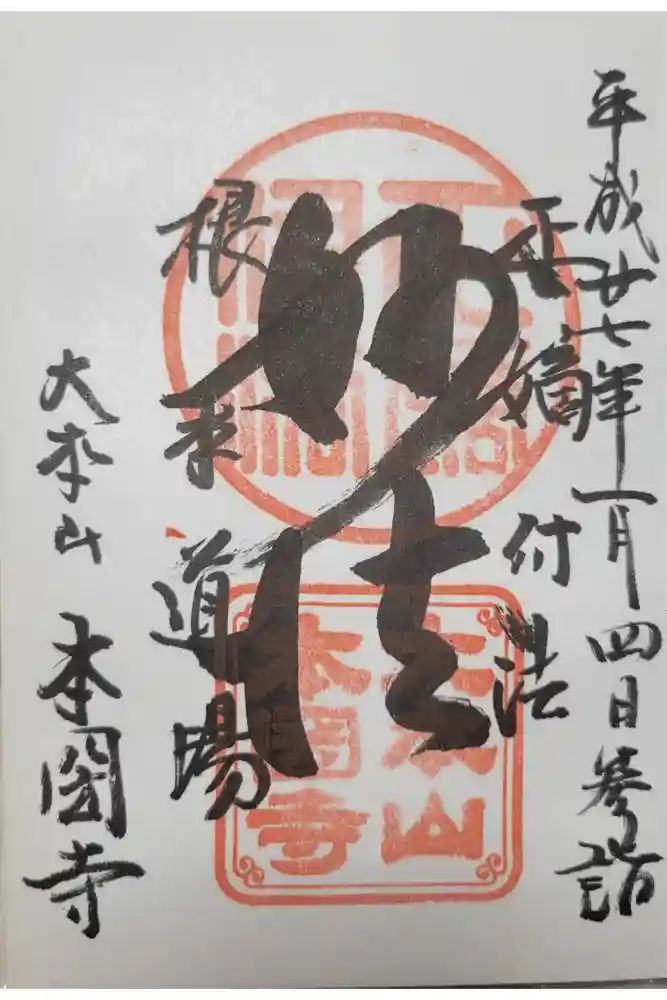 平成廿七年一月四日參詣
正嫡付法
妙法
根本道場
大本山 本圀寺
大本山
本圀寺